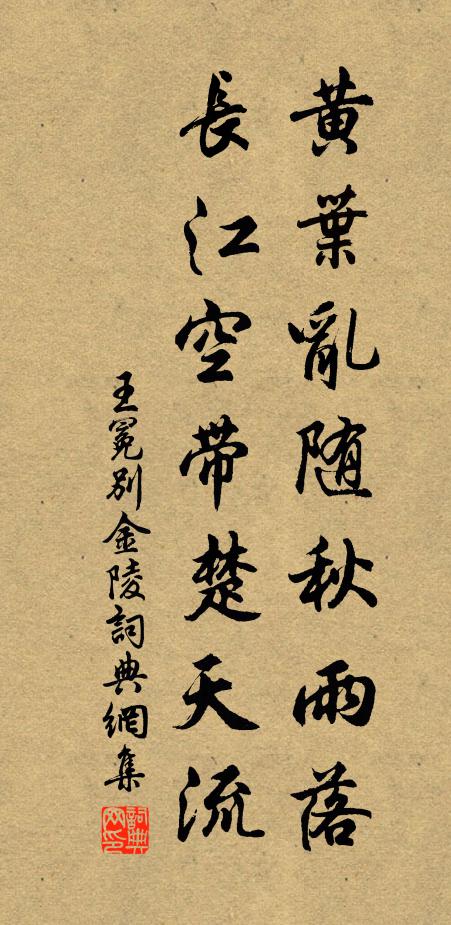 黃葉亂随秋雨落
長江空帶楚天流
王冕別金陵詞典網集
詞典网印